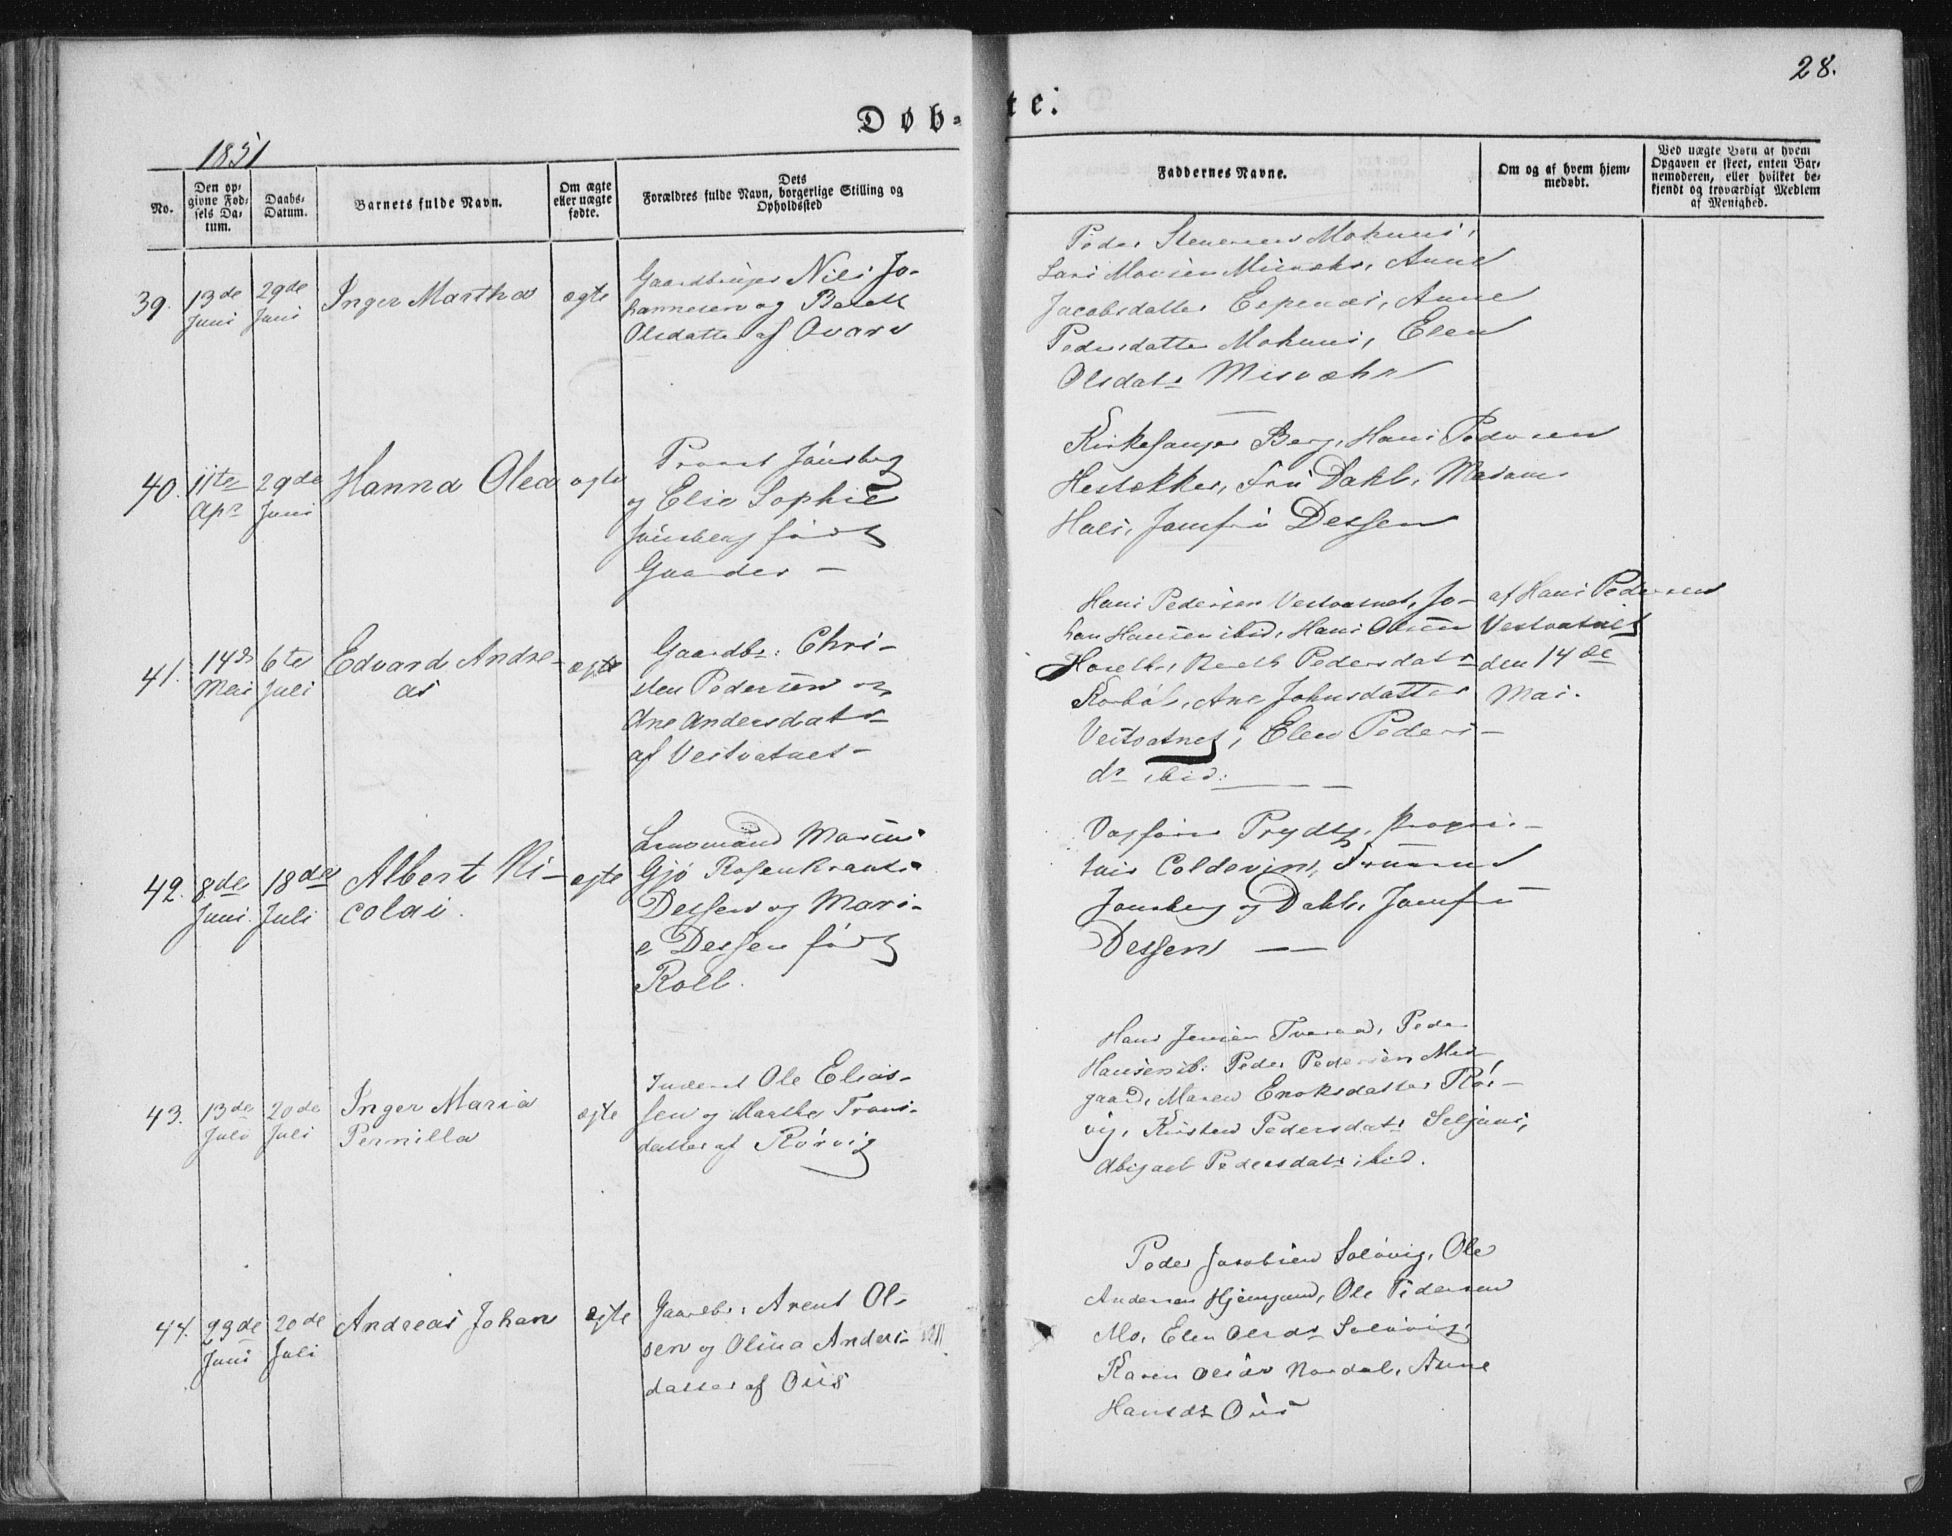 28.
Døb-te.
1851
No.
Den op-
givne Fød-
sels Da-
tum.
Daabs-
Datum.
Barnets fulde Navn.
Om ægte
eller uægte
fødte.
Dets
Forældres fulde Navn, borgerlige Stilling og
Opholdssted
Faddernes Navne.
Om og af hvem hjem-
medøbt.
Ved uægte Børn af hvem
Opgaven er skeet, enten Bar-
nemoderen, eller hvilket be-
kjendt og troværdigt Medlem
af Menighed.
39.
13de
Juni
29de
Juni
Inger Martha
ægte
Gaardbruger Niels Jo-
hannesen og Bereth
Olsdatter af
Peder
Anne
Jacobsdatter Espenæs, Anne
Pedersdatter Elen
Olsdatr Misvær
40.
11te
Apr
29de
Juni
Hanna Olea
ægte
Provst Jónsberg
og Elie Sophie
Jónsberg født
Gaarder -
Kirkesanger Berg, Hans Pedersen
Fru Dahl, Madam
Hals, Jomfru Dessen
41.
14de
Mai
6te
Juli
Edvard Andre-
as
ægte
Gaardbr: Chri-
sten Pedersen og
Ane Andersdatr
af Vestvatnet -
Hans Pedersen Vestvatnet, Jo-
han Hansen ibid, Hans Olsen
Bereth Pedersdatr
Ane Johnsdatter
Vestvatnet, Elen Peders-
dr ibid:
af Hans Pedersen
Vestvatnet
den 14de
Mai.
42.
8de
Juni
18de
Juli
Albert Ni-
colai.
ægte
Lensmand Marcus
Gjö Rosenkrantz
Dessen og Mari-
e Dessen født
Roll.
Prydtz, Proprie-
tair Coldevin, Fruerne
Jonsberg og Dahl, Jomfru
Dessen
43.
13de
Juli
20de
Juli
Inger Maria
Pernilla
ægte
Inderst Ole Elias-
sen og Martha
datter af Rörvig
Hans Jensen Tveraa, Peder
Hansen ib: Peder Pedersen Mid-
gaard, Maren Enoksdatter Rör-
vig, Kirsten Pedersdatr Seljanes,
Abigael Pedersdatr ibid.
44.
29de
Juni
20de
Juli
Andreas Johan
ægte
Gaardbr: Arent Ol-
sen og Olina Anders-
datter af Øiis
Peder Jacobsen Solövig, Ole
Andersen Hjemgaard, Ole Pedersen
Mo, Elen Olsdr Solövig,
Karen Olsdr Nordal, Anne
Hansdr Øiis